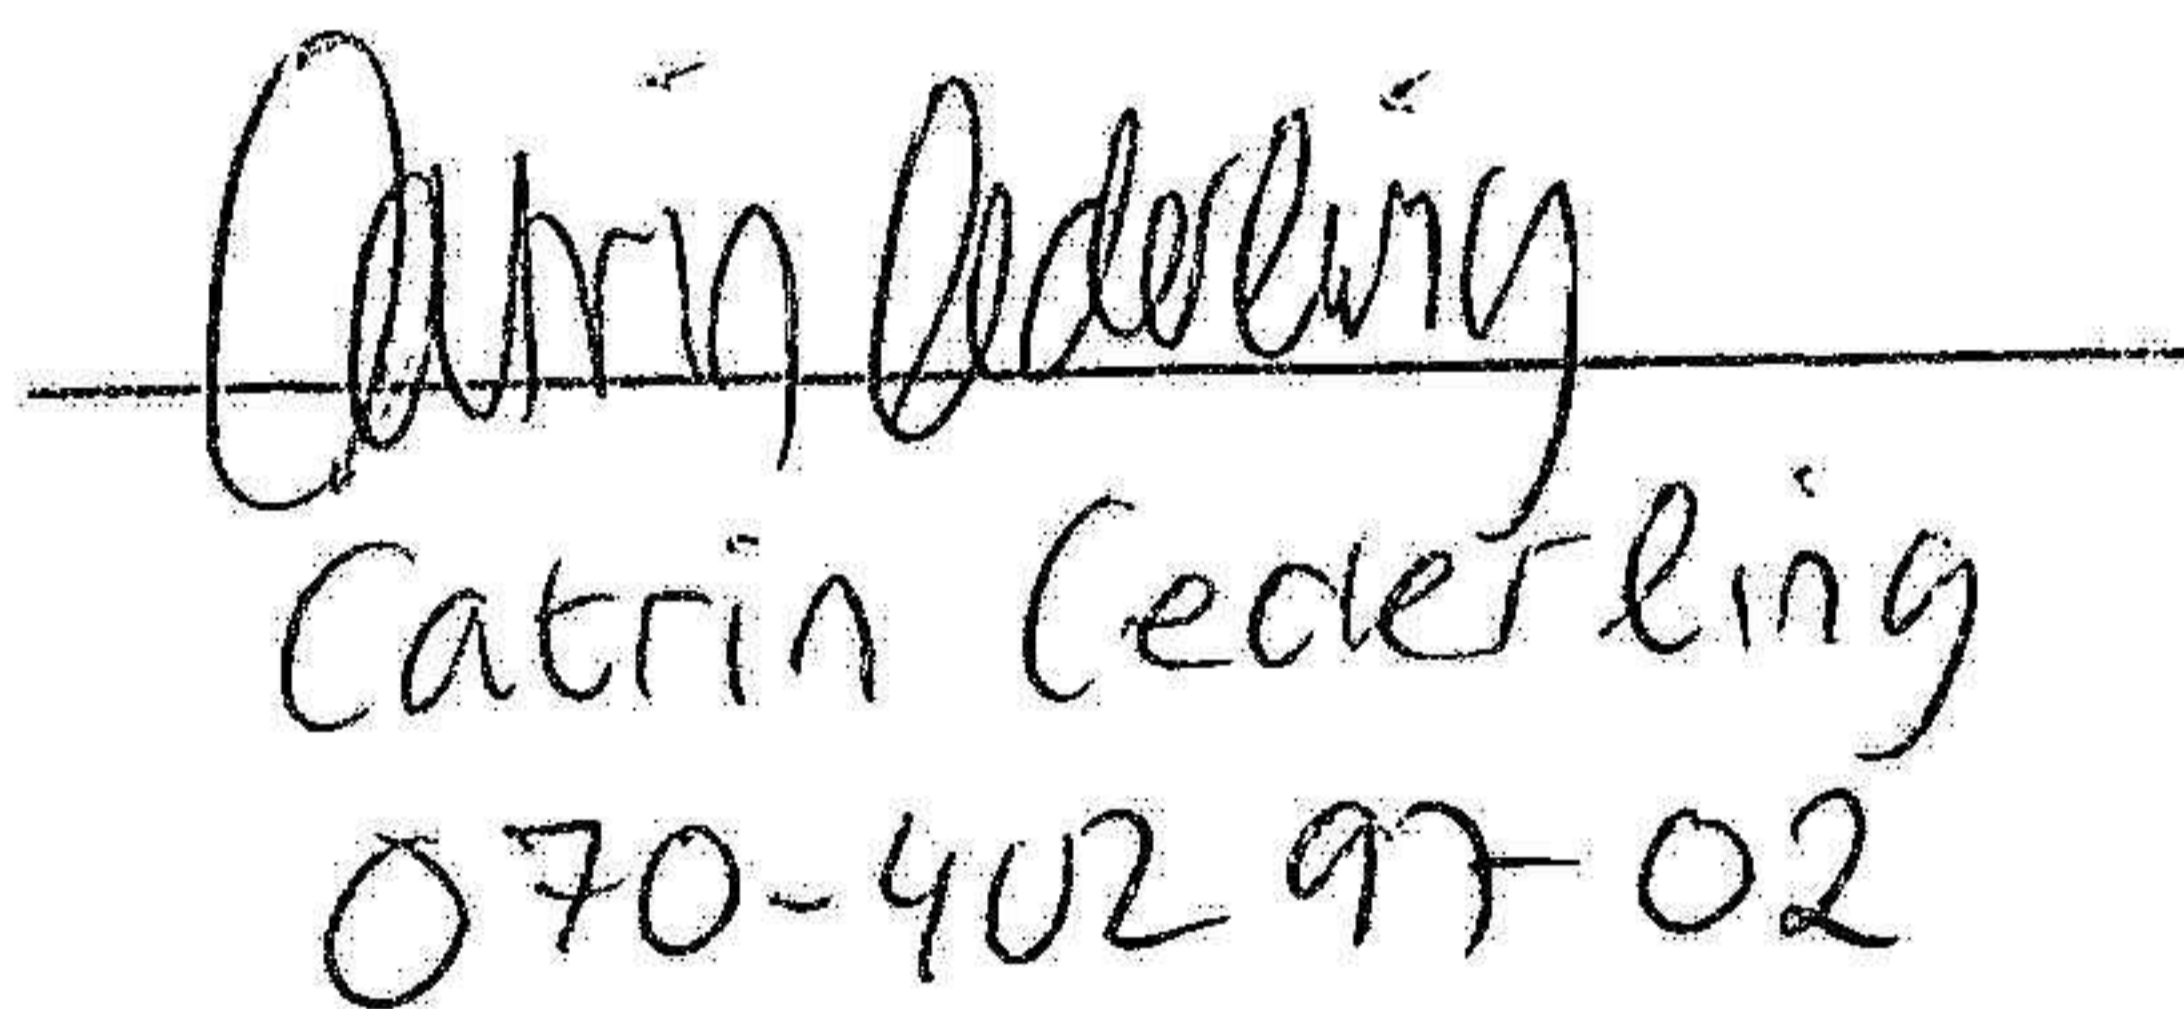 Catrin Cederling
Catrin Cederling
070-402 97 02